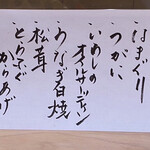 ・はまぐり
・つがに
・いわしの
オイルサーディン
・うなぎ白焼
・松茸
・とらふぐ
からあげ